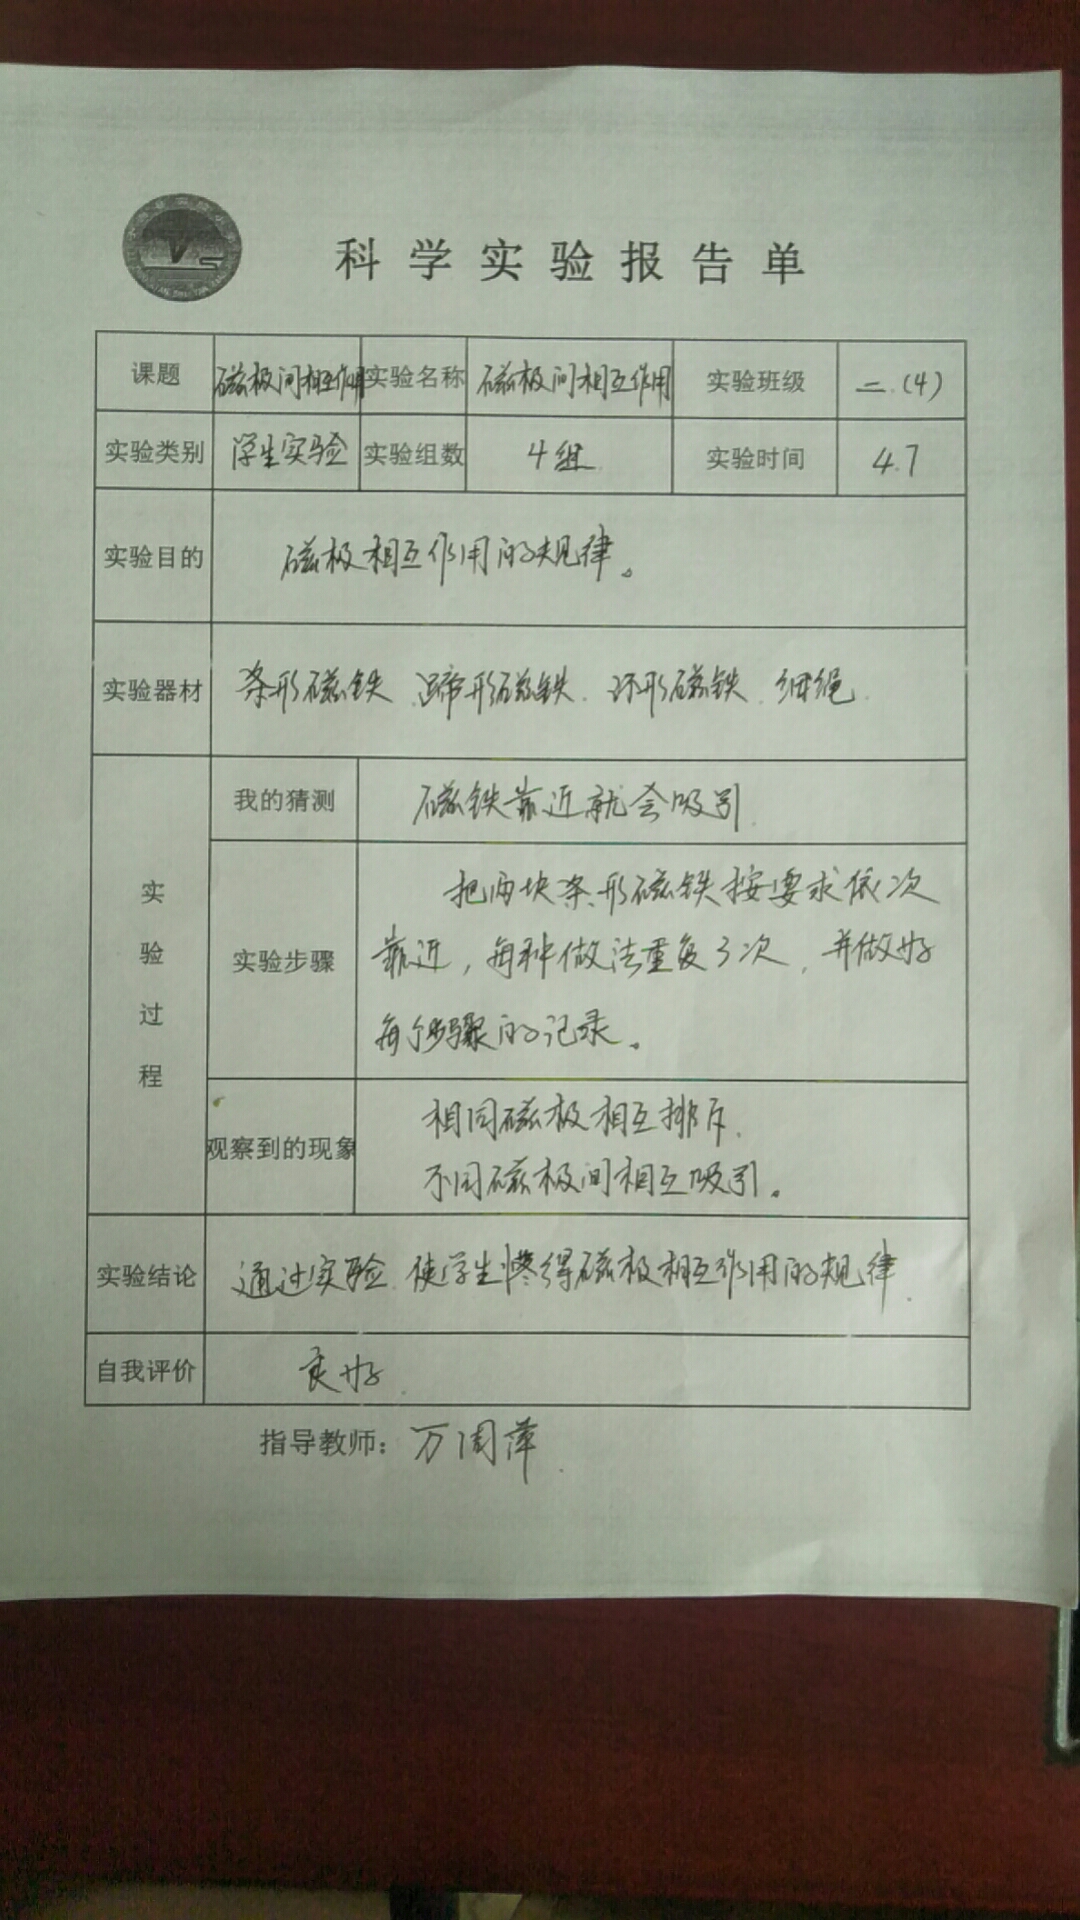 科学实验报告单
课题 磁极间相互作用 实验名称 磁极间相互作用 实验班级 二.(4)
实验类别 学生实验 实验组数 4组 实验时间 4.7
实验目的 磁极相互作用的规律。
实验器材 条形磁铁、蹄形磁铁、环形磁铁、细绳
实验过程
我的猜测 磁铁靠近就会吸引
实验步骤 把两块条形磁铁按要求依次
靠近，每种做法重复3次，并做好
每个步骤的记录。
观察到的现象 相同磁极相互排斥.
不同磁极间相互吸引。
实验结论 通过实验.使学生懂得磁极相互作用的规律.
自我评价 良好.
指导教师：万周萍